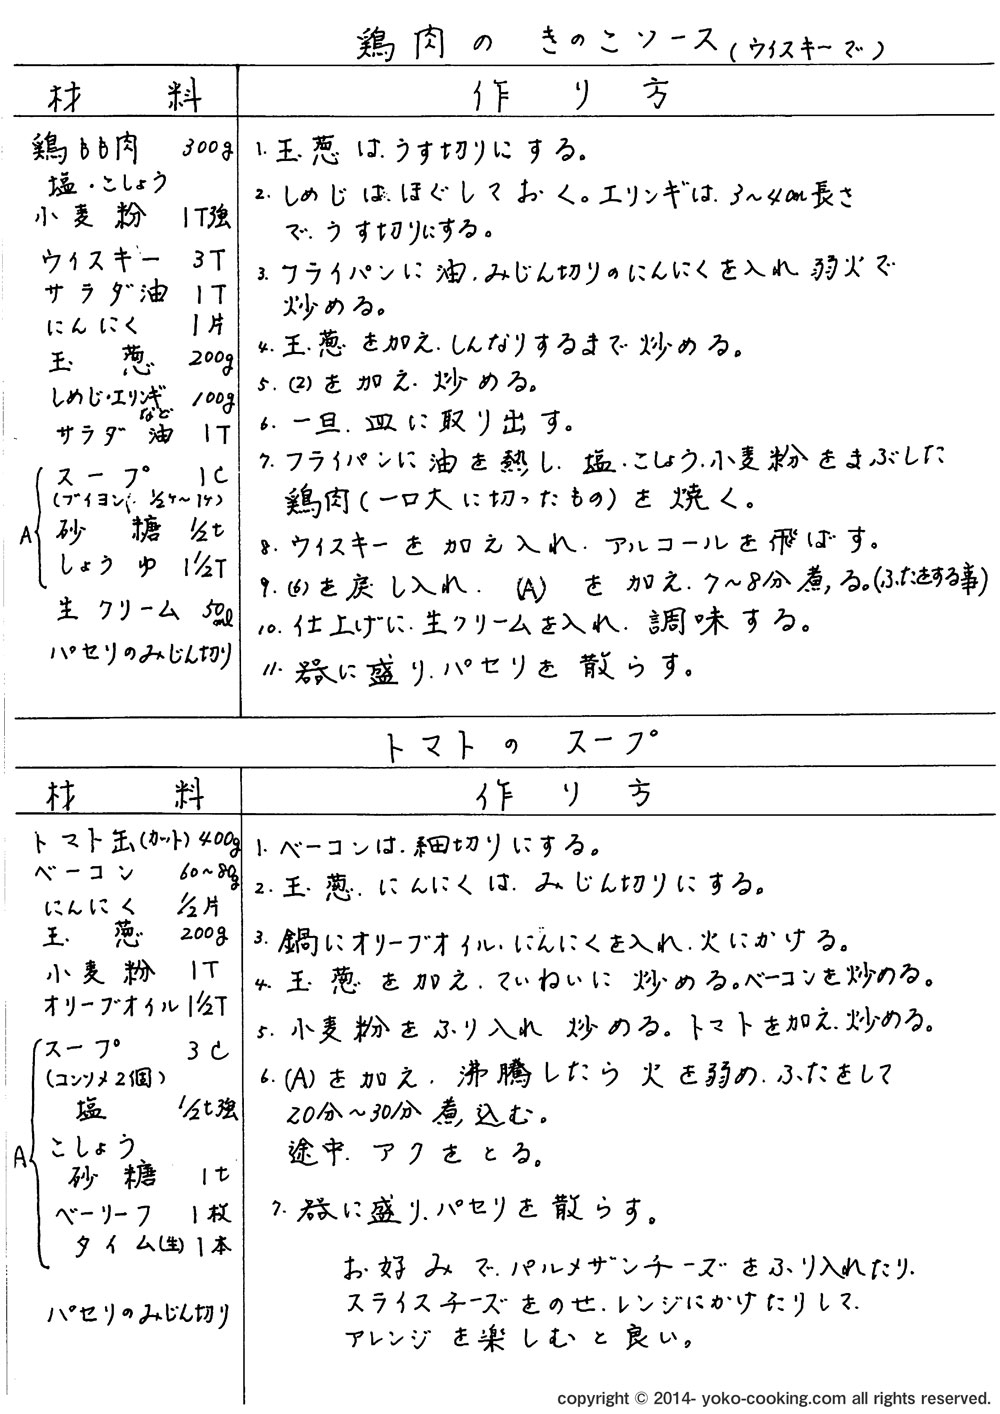 鶏肉の きのこソース(ウイスキーで)
材 料
作 り 方
鶏もも肉 300g
塩・こしょう
小麦粉 1T強
ウイスキー 3T
サラダ油 1T
にんにく 1片
玉葱 200g
しめじ・エリンギ 100g
など
サラダ油 1T
A
スープ 1C
(ブイヨン 1/2ケ〜1ケ)
砂糖 1/2t
しょうゆ 1 1/2T
生クリーム 50ml
パセリのみじん切り
1. 玉葱は、うす切りにする。
2. しめじは、ほぐしておく。エリンギは、3〜4cm長さ
で、うす切りにする。
3. フライパンに油、みじん切りのにんにくを入れ 弱火で
炒める。
4. 玉葱を加え、しんなりするまで炒める。
5. (2)を加え、炒める。
6. 一旦、皿に取り出す。
7. フライパンに油を熱し、塩・こしょう、小麦粉をまぶした
鶏肉(一口大に切ったもの)を焼く。
8. ウイスキーを加え入れ、アルコールを飛ばす。
9. (6)を戻し入れ、(A)を加え、7〜8分煮る。(ふたをする事)
10. 仕上げに、生クリームを入れ、調味する。
11. 器に盛り、パセリを散らす。
トマトの スープ
材 料
作 り 方
トマト缶(カット) 400g
ベーコン 60〜80g
にんにく 1/2片
玉葱 200g
小麦粉 1T
オリーブオイル 1 1/2T
A
スープ 3C
(コンソメ2個)
塩 1/2t強
こしょう
砂糖 1t
ベーリーフ 1枚
タイム(生) 1本
パセリのみじん切り
1. ベーコンは、細切りにする。
2. 玉葱、にんにくは、みじん切りにする。
3. 鍋にオリーブオイル、にんにくを入れ、火にかける。
4. 玉葱を加え、ていねいに炒める。ベーコンを炒める。
5. 小麦粉をふり入れ 炒める。トマトを加え、炒める。
6. (A)を加え、沸騰したら火を弱め、ふたをして
20分〜30分煮込む。
途中、アクをとる。
7. 器に盛り、パセリを散らす。
お好みで、パルメザンチーズをふり入れたり、
スライスチーズをのせ、レンジにかけたりして、
アレンジを楽しむと良い。
copyright © 2014- yoko-cooking.com all rights reserved.